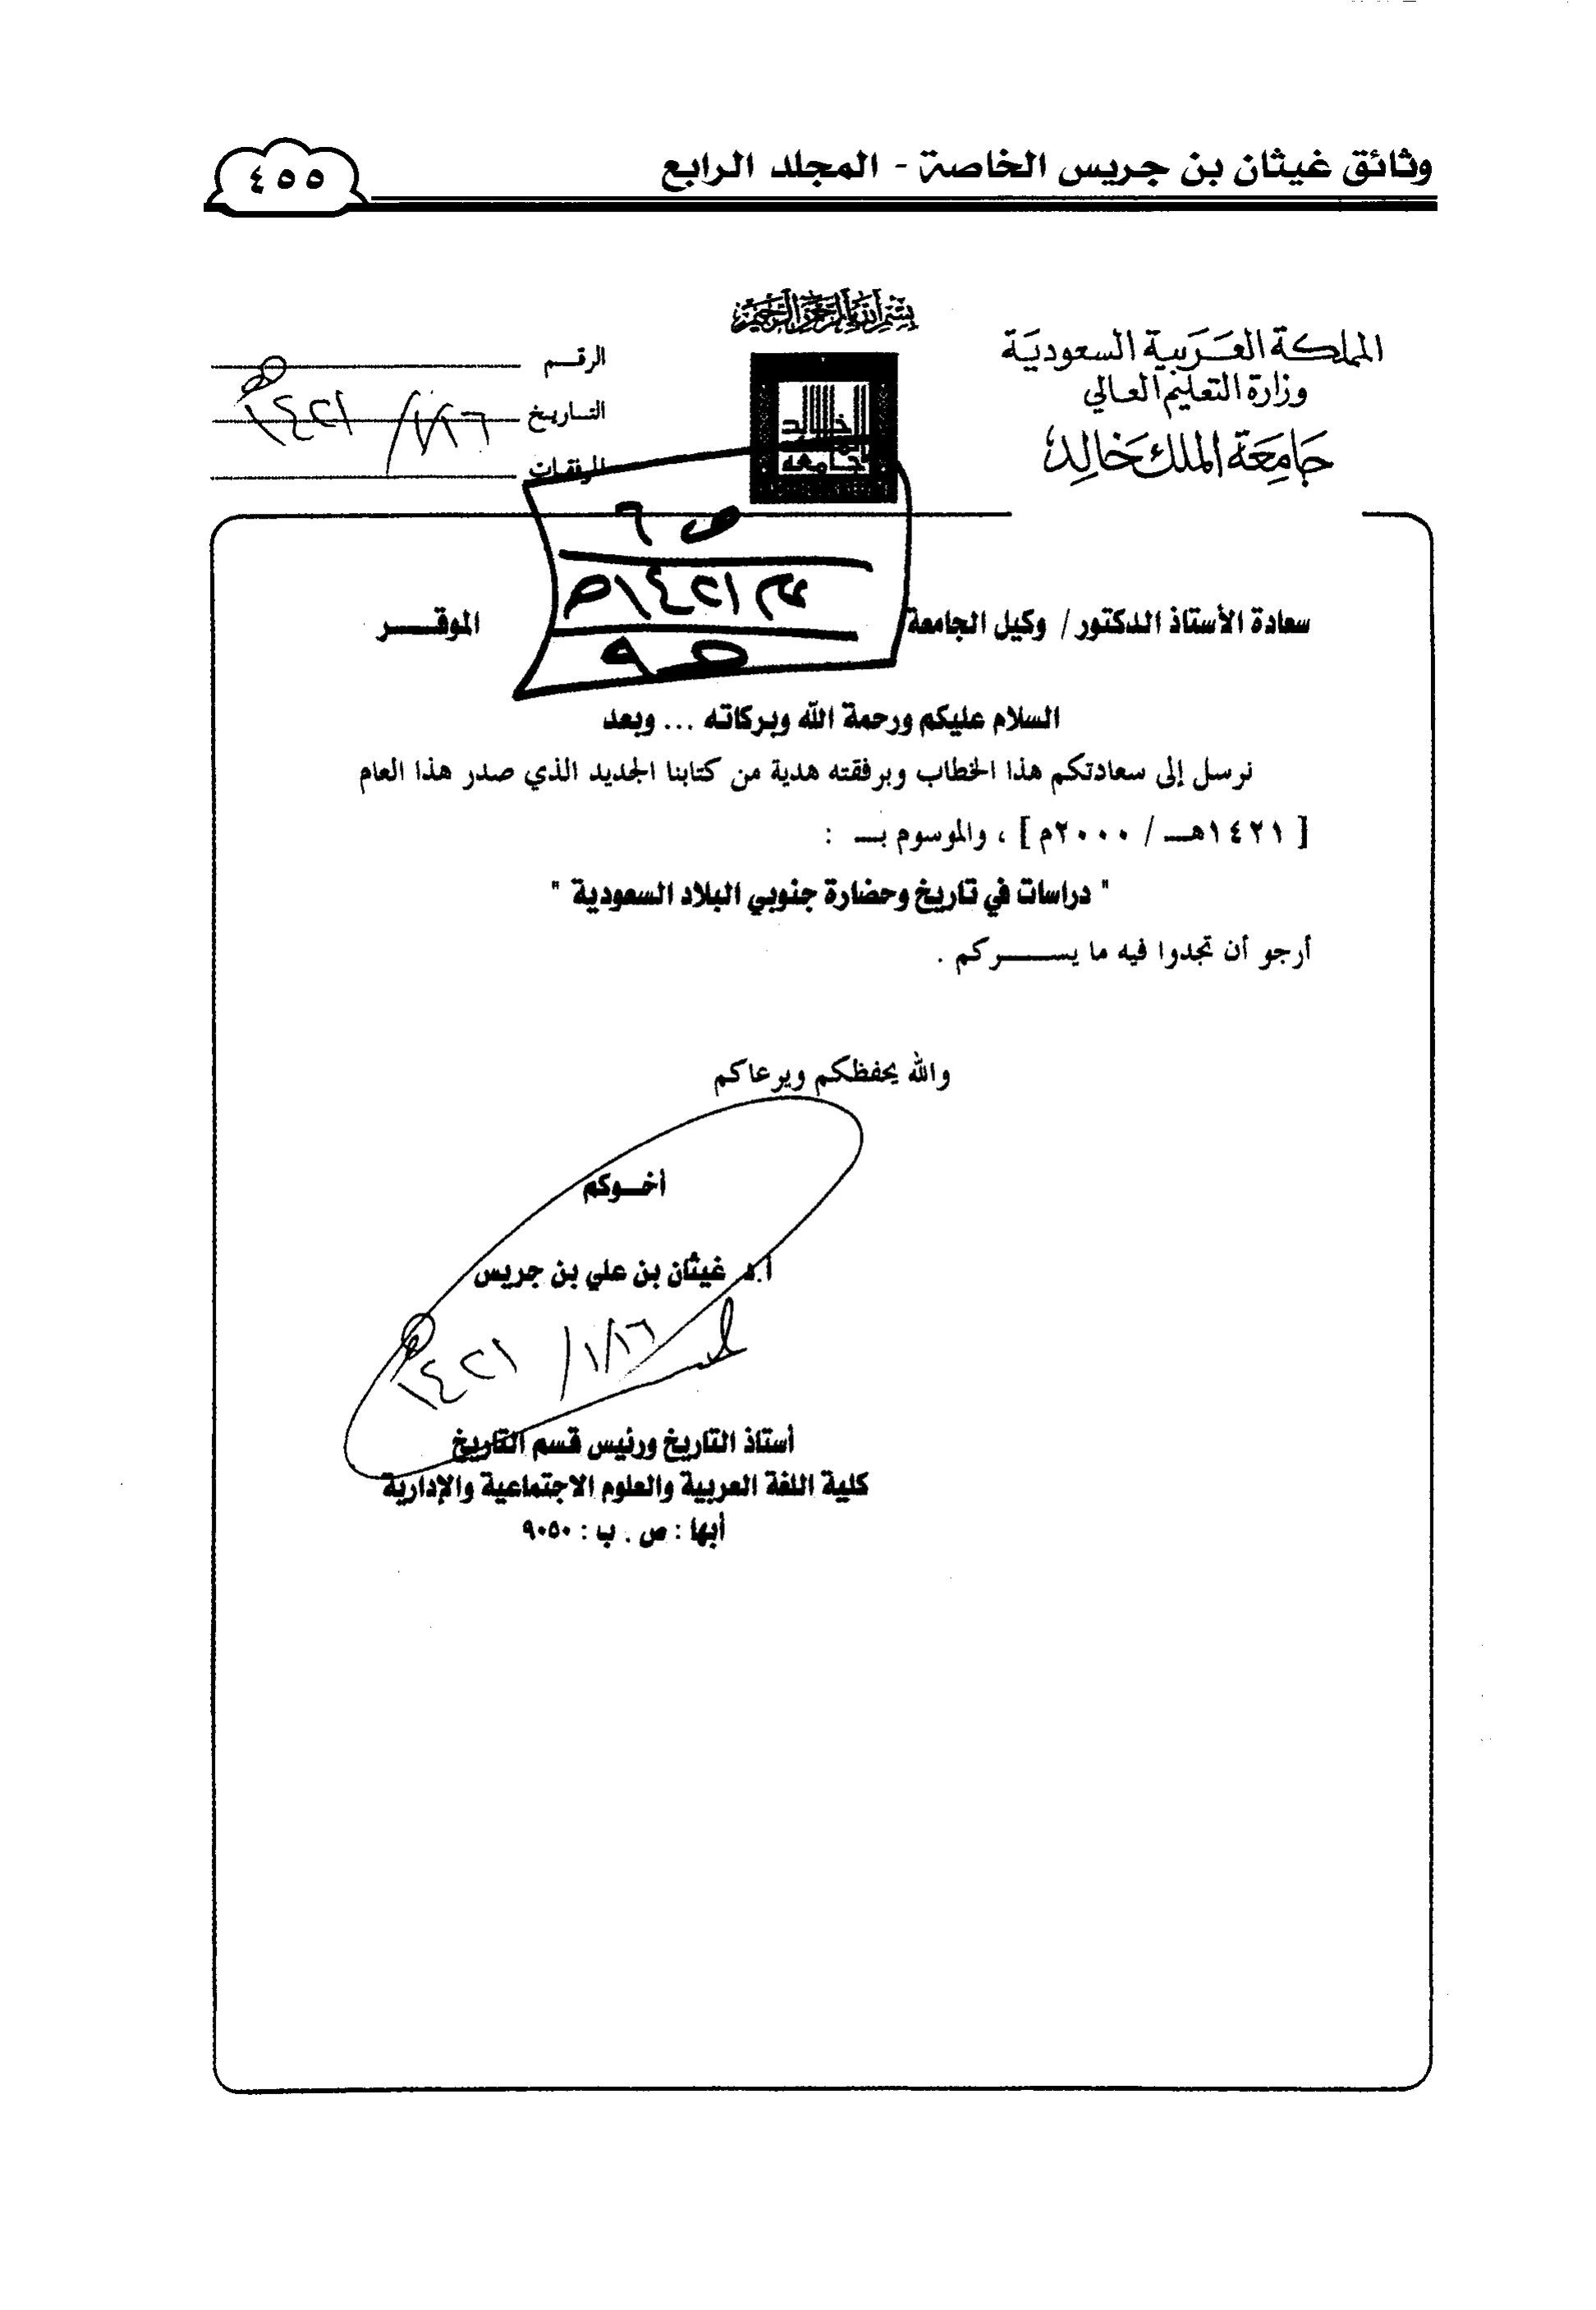 وثائق غيثان بن جريس الخاصة - المجلد الرابع
٤٥٥
بسم الله الرحمن الرحيم
المملكة العربية السعودية
وزارة التعليم العالي
جامعة الملك خالد
جامعة الملك خالد
الرقم
التاريخ ١٤٢١/١/١٦هـ
المرفقات
ص ٦
عام ١٤٢١هـ
سعادة الأستاذ الدكتور / وكيل الجامعة الموقـــــر
السلام عليكم ورحمة الله وبركاته ... وبعد
نرسل إلى سعادتكم هذا الخطاب وبرفقته هدية من كتابنا الجديد الذي صدر هذا العام
[ ١٤٢١هــ / ٢٠٠٠م ] ، والموسوم بــ :
" دراسات في تاريخ وحضارة جنوبي البلاد السعودية "
أرجو أن تجدوا فيه ما يســـــركم .
والله يحفظكم ويرعاكم
أخــوكم
أ.د غيثان بن علي بن جريس
١٤٢١/١/١٦هـ
أستاذ التاريخ ورئيس قسم التاريخ
كلية اللغة العربية والعلوم الاجتماعية والإدارية
أبها : ص . ب : ٩٠٥٠